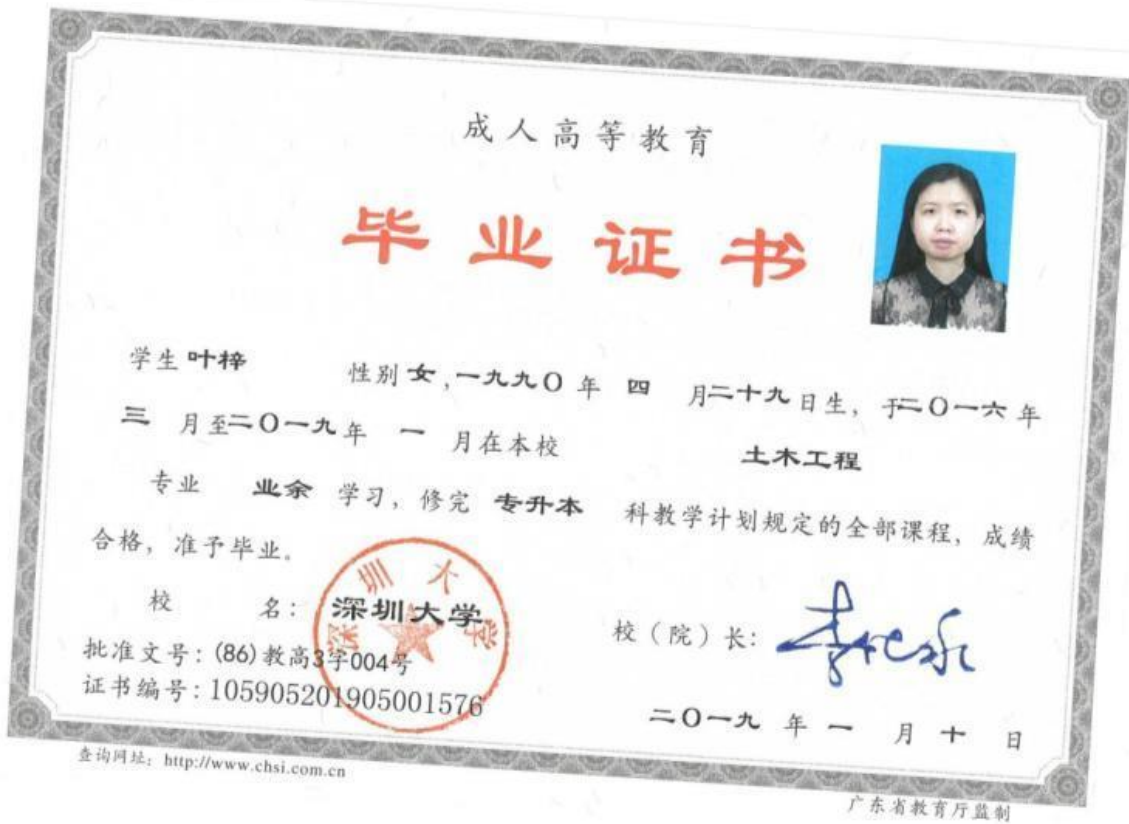 成人高等教育
毕业证书
学生 叶梓 性别 女,一九九〇 年 四 月二十九日生，于二〇一六年
三 月至二〇一九年 一 月在本校 土木工程
专业 业余 学习，修完 专升本 科教学计划规定的全部课程，成绩
合格，准予毕业。
校 名： 深圳大学
深圳大学
校（院）长：
批准文号：(86)教高3字004号
证书编号：105905201905001576
二〇一九 年 一 月 十 日
查询网址：http://www.chsi.com.cn
广东省教育厅监制